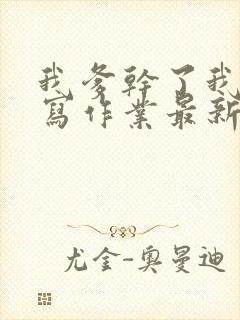 我爹幹了我
寫作業最新
尤金-奧曼迪